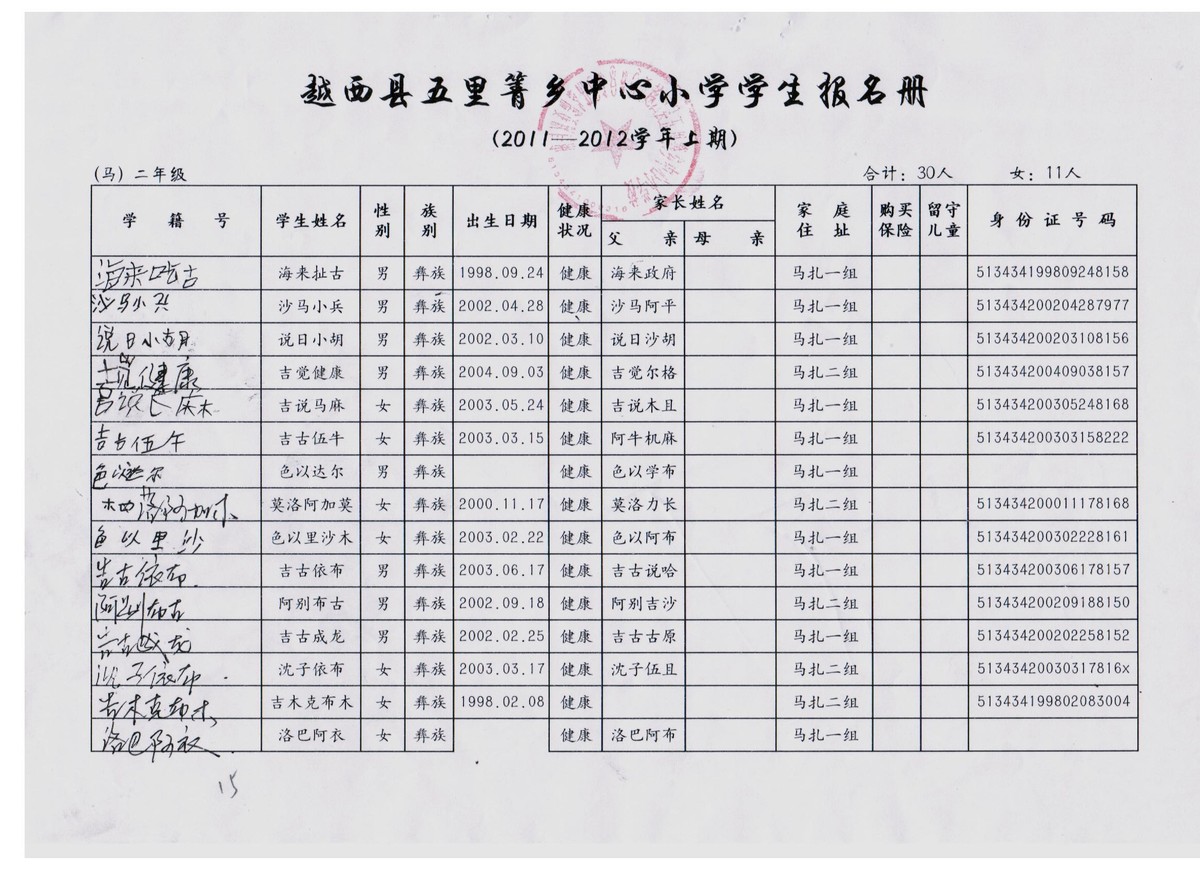 越西县五里箐乡中心小学学生报名册
(2011—2012学年上期)
(马) 二年级 合计: 30人 女: 11人
学籍号 学生姓名 性别 族别 出生日期 健康状况 家长姓名 父亲 母亲 家庭住址 购买保险 留守儿童 身份证号码
海来吃古 海来扯古 男 彝族 1998.09.24 健康 海来政府 马扎一组 513434199809248158
沙马小兵 沙马小兵 男 彝族 2002.04.28 健康 沙马阿平 马扎一组 513434200204287977
说日小胡 说日小胡 男 彝族 2002.03.10 健康 说日沙胡 马扎一组 513434200203108156
吉觉健康 吉觉健康 男 彝族 2004.09.03 健康 吉觉尔格 马扎二组 513434200409038157
吉说马麻 女 彝族 2003.05.24 健康 吉说木且 马扎一组 513434200305248168
吉古伍午 吉古伍牛 女 彝族 2003.03.15 健康 阿牛机麻 马扎一组 513434200303158222
色以达尔 色以达尔 男 彝族 健康 色以学布 马扎一组
莫洛阿加莫 女 彝族 2000.11.17 健康 莫洛力长 马扎二组 513434200011178168
色以里沙 色以里沙木 女 彝族 2003.02.22 健康 色以阿布 马扎一组 513434200302228161
吉古依布 吉古依布 男 彝族 2003.06.17 健康 吉古说哈 马扎一组 513434200306178157
阿别布古 阿别布古 男 彝族 2002.09.18 健康 阿别吉沙 马扎二组 513434200209188150
吉古成龙 吉古成龙 男 彝族 2002.02.25 健康 吉古古原 马扎一组 513434200202258152
沈子依布 沈子依布 女 彝族 2003.03.17 健康 沈子伍且 马扎二组 51343420030317816x
吉木克布木 吉木克布木 女 彝族 1998.02.08 健康 马扎二组 513434199802083004
洛巴阿衣 洛巴阿衣 女 彝族 健康 洛巴阿布 马扎一组
15